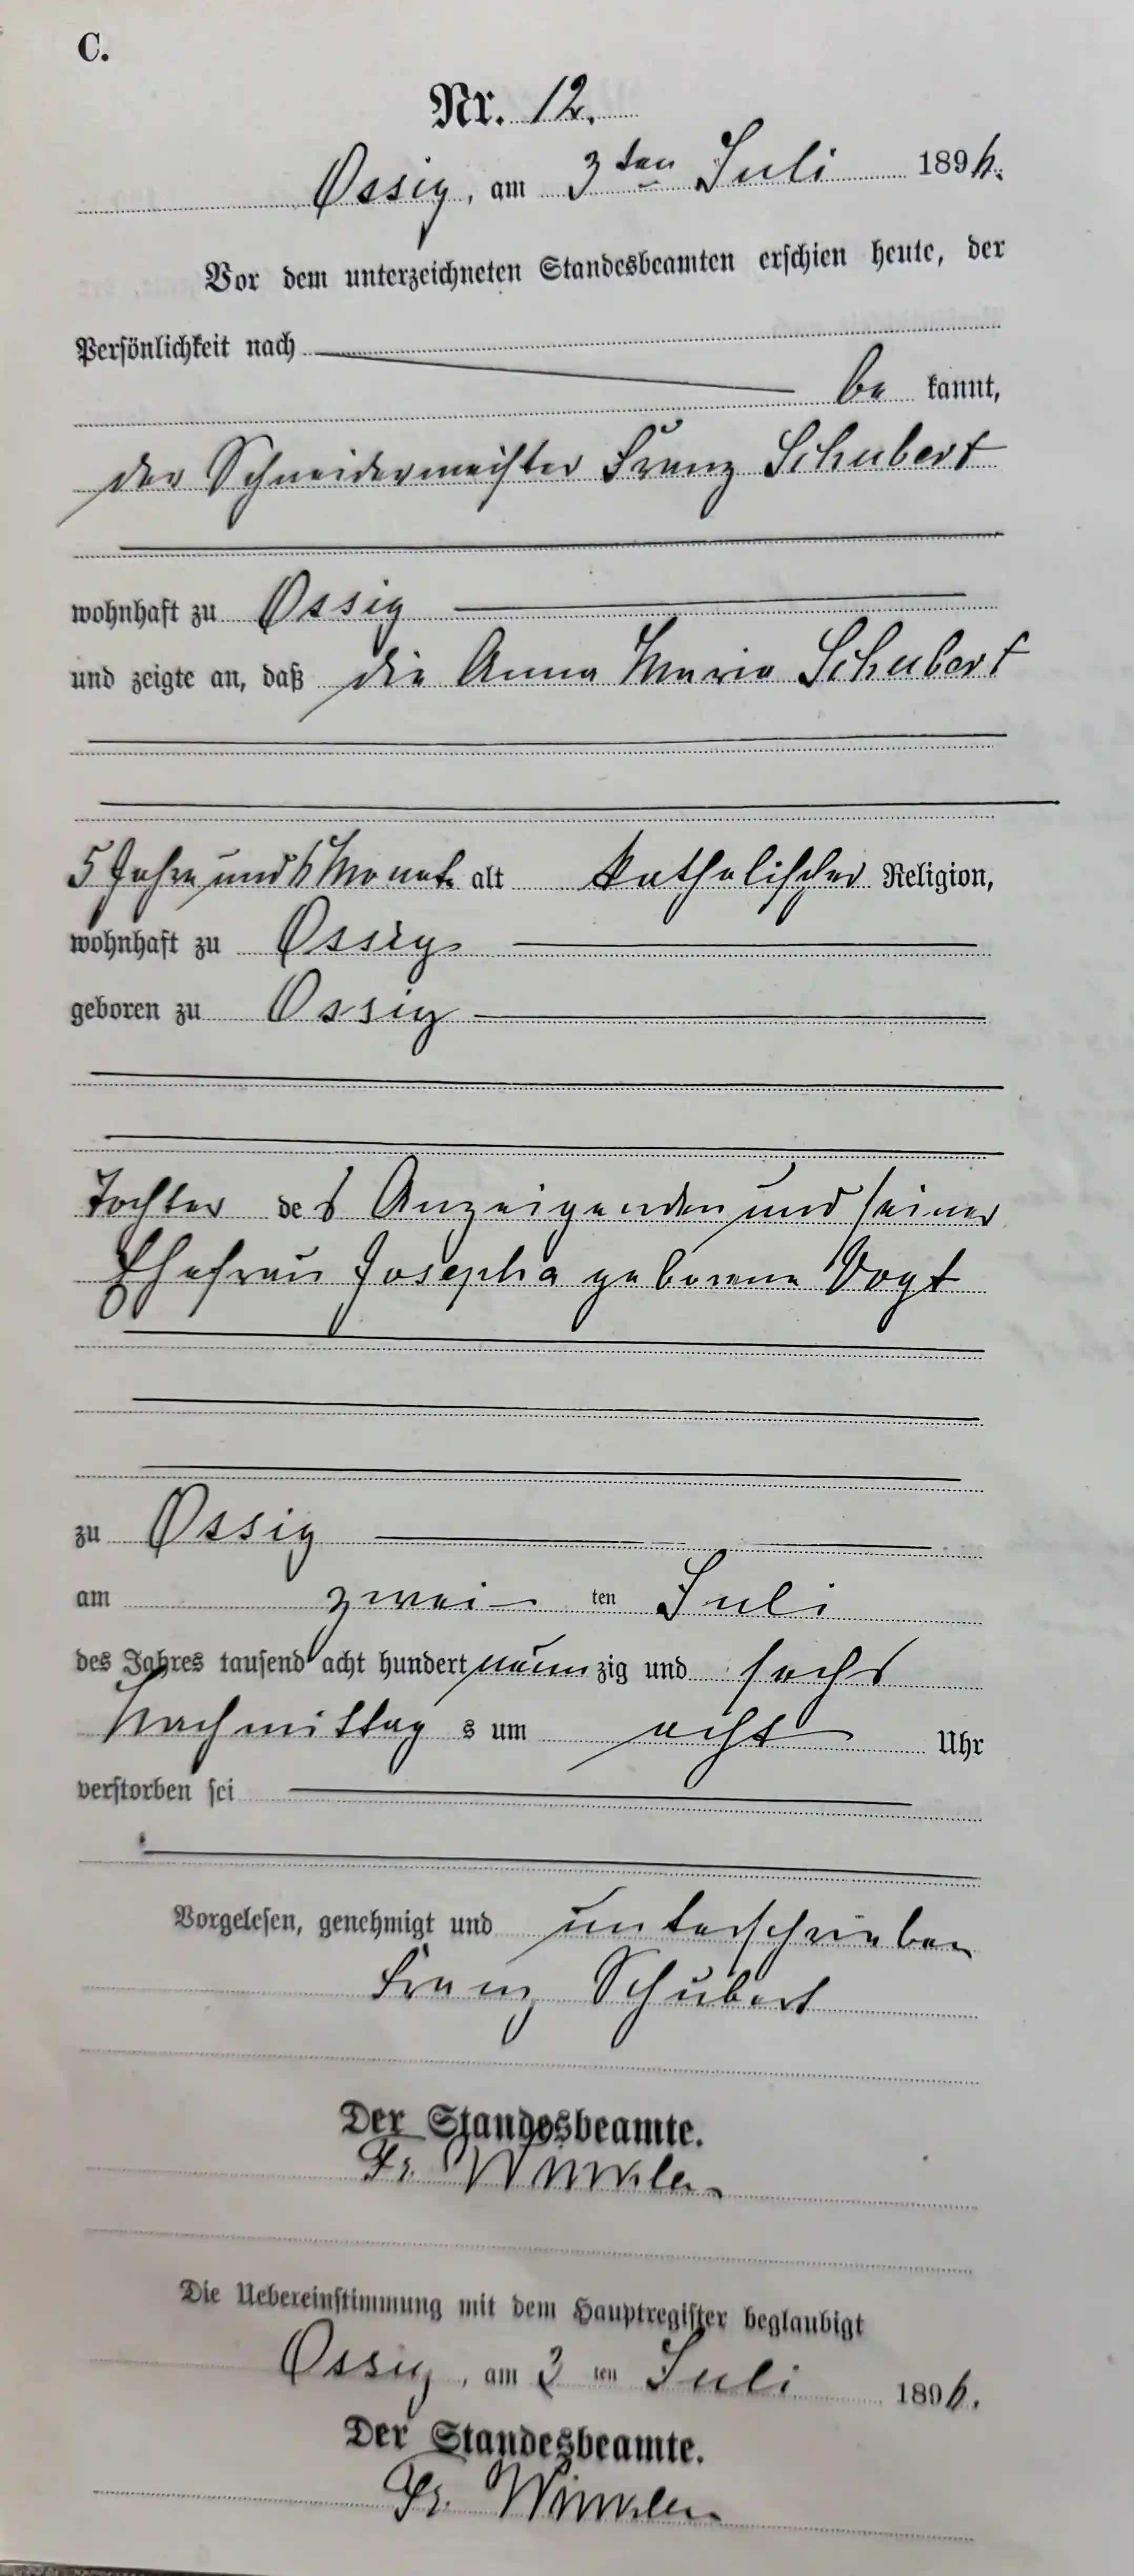 C.
Nr. 12.
Ossig, am 3ten Juli 1896.
Vor dem unterzeichneten Standesbeamten erschien heute, der
Persönlichkeit nach
be kannt,
der Schneidermeister Franz Schubert
wohnhaft zu Ossig
und zeigte an, daß die Anna Maria Schubert
5 Jahre und 6 Monate alt katholischer Religion,
wohnhaft zu Ossig
geboren zu Ossig
Tochter des Anzeigenden und seiner
Ehefrau Josepha geborene Vogt
zu Ossig
am zwei ten Juli
des Jahres tausend acht hundert neun zig und sechs
Nachmittag s um acht Uhr
verstorben sei
Vorgelesen, genehmigt und unterschrieben
Franz Schubert
Der Standesbeamte.
Fr. Winkler
Die Uebereinstimmung mit dem Hauptregister beglaubigt
Ossig, am 3 ten Juli 1896.
Der Standesbeamte.
Fr. Winkler